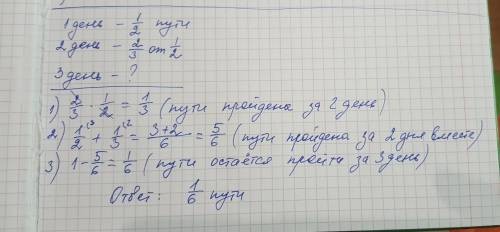 1 день – 1/2 пути
2 день – 2/3 от 1/2
3 день – ?
1) 2/3 · 1/2 = 1/3 (пути пройдена за 2 день)
2) 1/2^(3 + 1/3^(2 = 3+2/6 = 5/6 (пути пройдена за 2 дня вместе)
3) 1 - 5/6 = 1/6 (пути остаётся пройти за 3 день)
Ответ: 1/6 пути